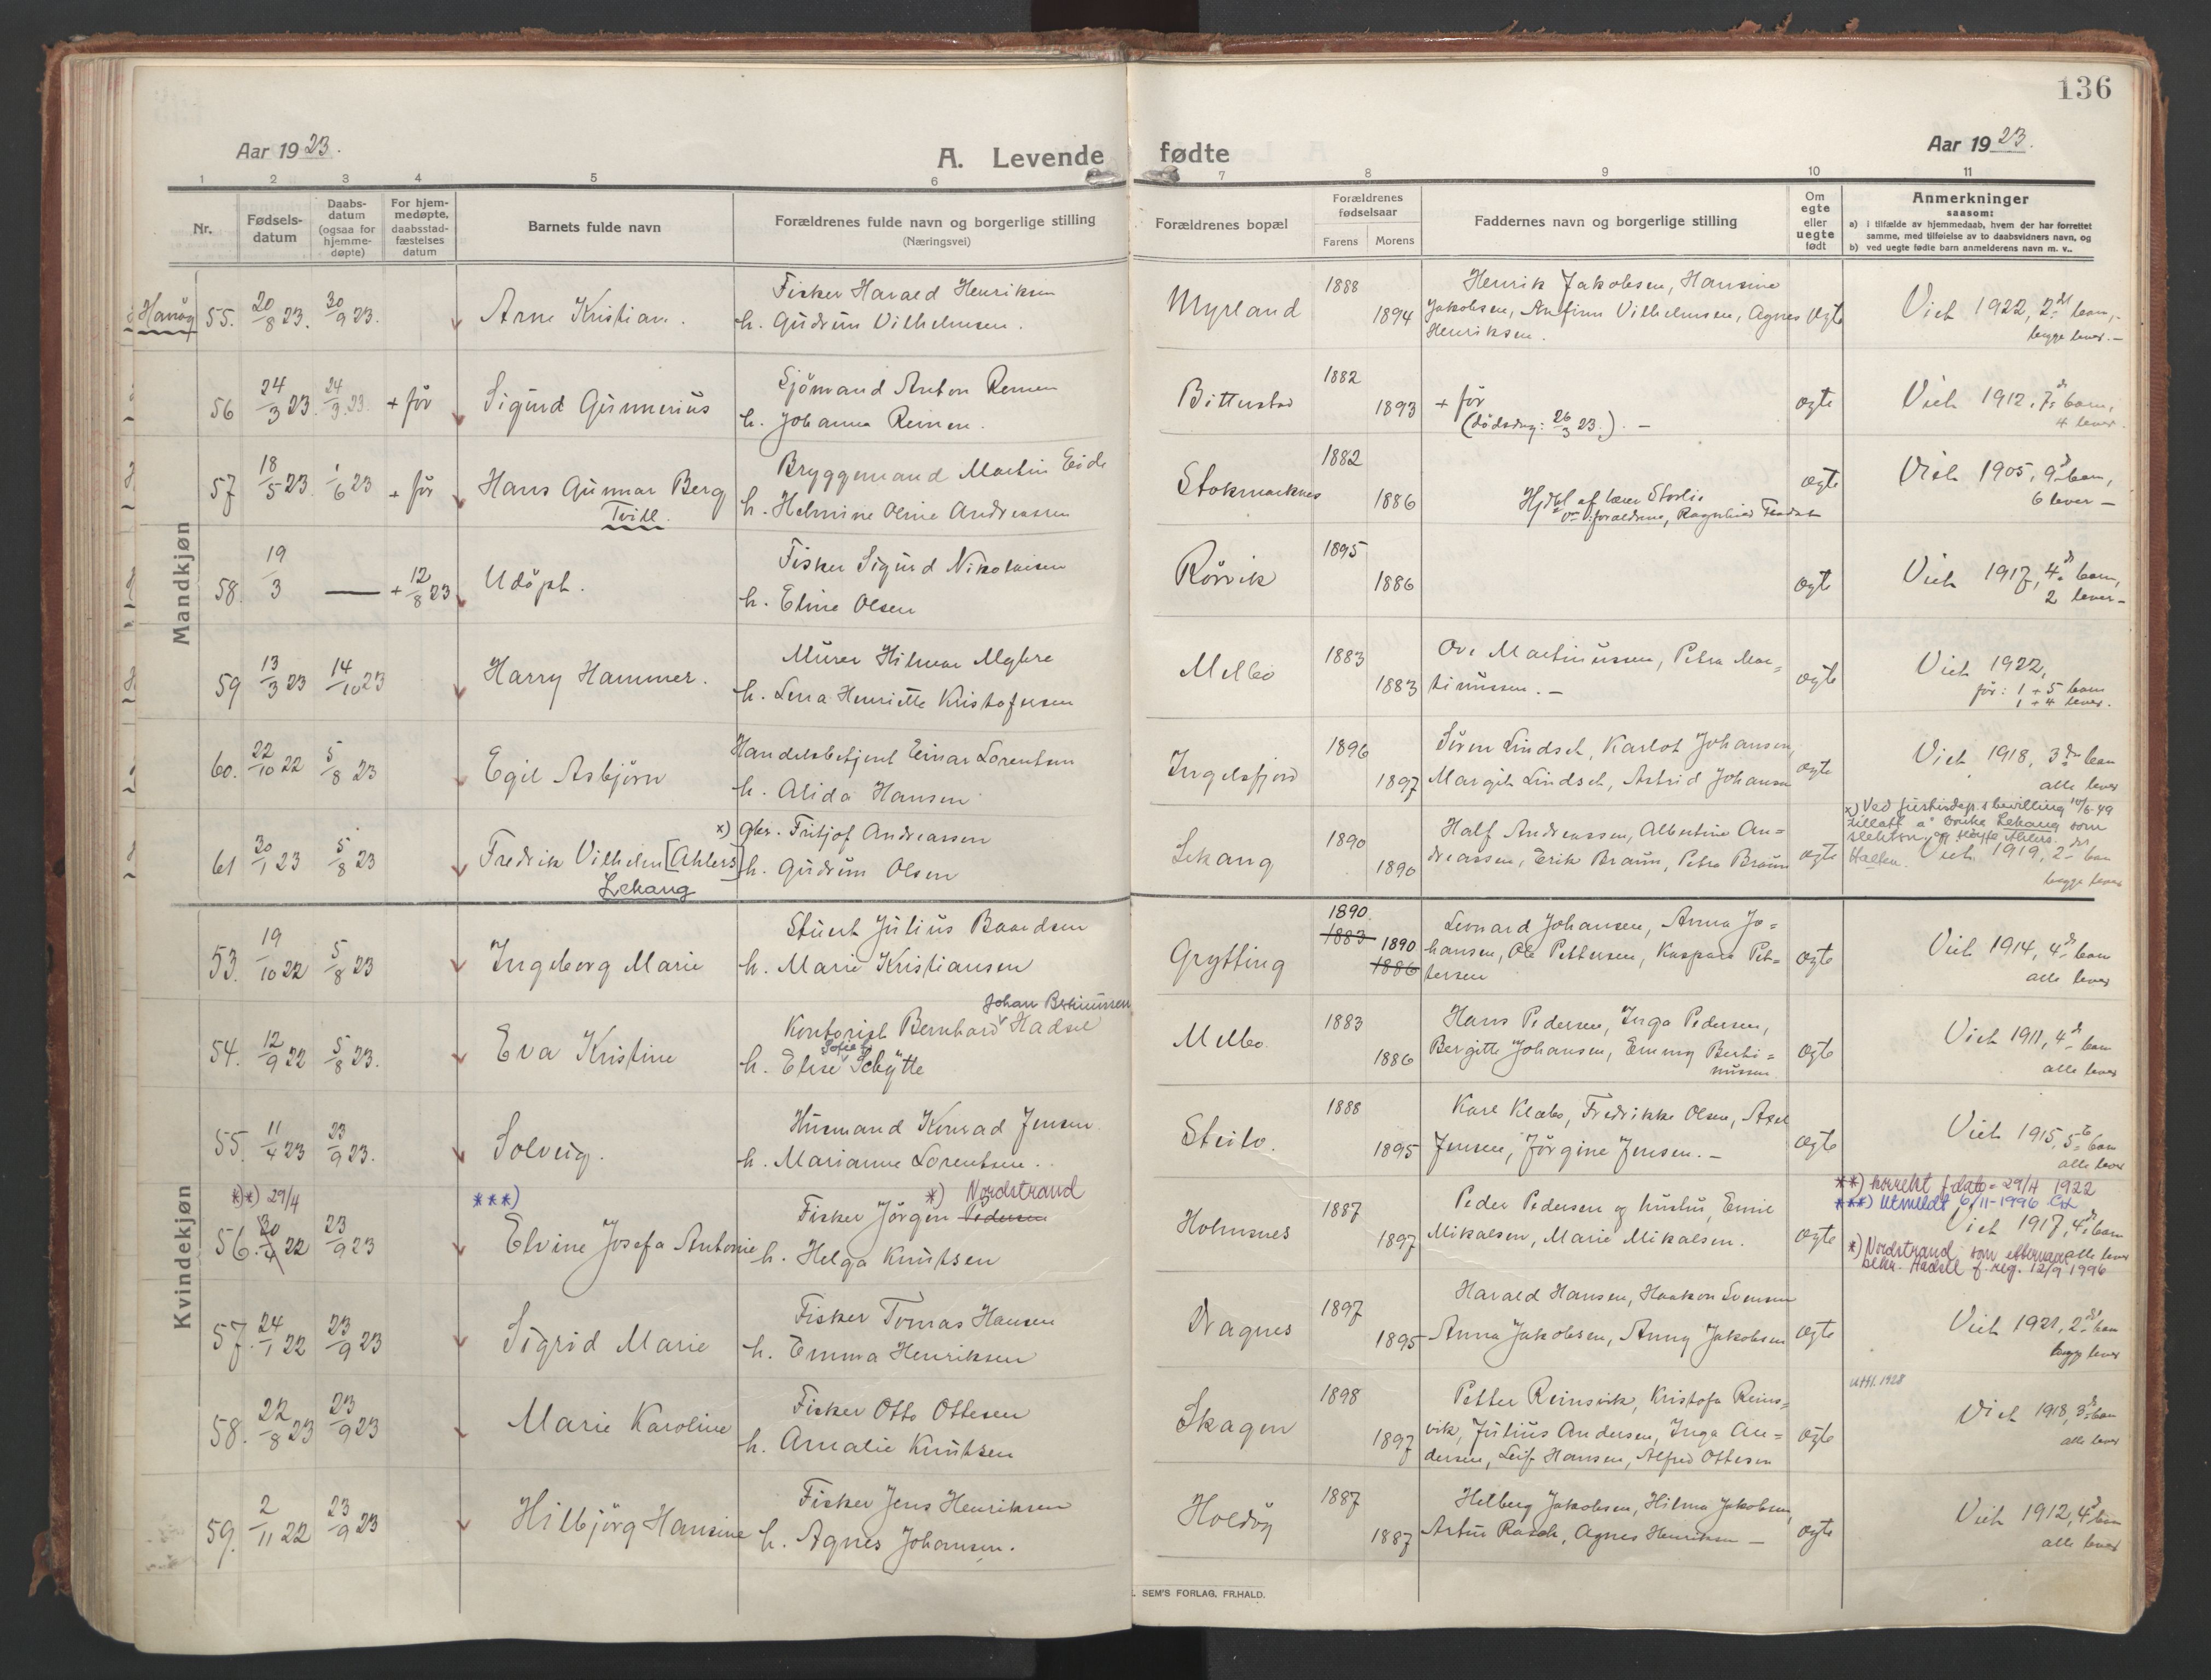 136
Aar 1923.
A. Levende fødte
Aar 1923.
1 2 3 4 5 6 7 8 9 10 11
Nr.
Fødsels-
datum
Daabs-
datum
(ogsaa for
hjemme-
døpte)
For hjem-
medøpte,
daabsstad-
fæstelses
datum
Barnets fulde navn
Forældrenes fulde navn og borgerlige stilling
(Næringsvei)
Forældrenes bopæl
Forældrenes
fødselsaar
Farens Morens
Faddernes navn og borgerlige stilling
Om
egte
eller
uegte
født
Anmerkninger
saasom:
a) i tilfælde av hjemmedaab, hvem der har forrettet
samme, med tilføielse av to daabsvidners navn, og
b) ved uegte fødte barn anmelderens navn m. v..
Mandkjøn
55. 20/8 23. 30/9 23. Arne Kristian.
Fisker Harald Henriksen
h. Gudrun Vilhelmsen.
Myrland 1888 1894
Henrik Jakobsen, Hansine
Jakobsen, Anfinn Vilhelmsen, Agnes
Henriksen.
egte
Viet 1922, 2det barn,
begge lever. —
56 24/3 23. 24/3 23. + før Sigurd Gunnerius
Sjømand Anton Reinen
h. Johanna Reinen.
Bitterstad 1882 1893
+ før
(dødsdag: 26/3 23.). —
egte
Viet 1912, 7de barn,
4 lever.
57 18/5 23. 1/6 23 + før Hans Gunnar Berg
Tvill.
Bryggemand Martin Eide
h. Helmine Oline Andreassen
Stokmarknes 1882 1886
Hjdbt af lærer Storlie
forældrene, Ragnhild
egte
Viet 1905, 9de barn,
6 lever —
58. 19/3 — + 12/8 23 Udøpt.
Fisker Sigurd Nikolaisen
h. Eline Olsen
Rørvik 1895 1886
egte
Viet 1917, 4de barn,
2 lever —
59 13/3 23 14/10 23 Harry Hammer.
Murer Hilmar Myhre
h. Lena Henriette Kristofersen
Melbo 1883 1883
Ove Martinussen, Petra Mar=
tinussen. —
egte
Viet 1922,
før: 1 + 5 barn
1 + 4 lever.
60. 22/10 22 5/8 23 Egil Asbjørn
Handelsbetjent Einar Lorentsen
h. Alida Hansen
Ingelsfjord 1896 1897
Søren Lindset, Karlot Johansen,
Margit Lindset, Astrid Johansen
egte
Viet 1918, 3die barn
alle lever
61 30/1 23 5/8 23 Fredrik Vilhelm [Ahlers]
Lekang
x) Gbr. Fritjof Andreassen
h. Gudrun Olsen
Lekang 1890 1890
Half Andreassen, Albertine An=
dreassen, Erik Braun, Petra Braun
egte
x) Ved justisdep.s bevilling 10/6-49
tillatt å bruke Lekang som
slektsn. og sløyfe Ahlers.
Halten. Viet 1919, 2det barn
begge lever
Kvindekjøn
53. 19/10 22 5/8 23 Ingeborg Marie
Stuert Julius Baardsen
h. Marie Kristiansen
Grytting 1890. 1883 1890 1886
Leonard Johansen, Anna Jo=
hansen, Ole Pettersen, Kaspara Pet=
tersen
egte
Viet 1914, 4de barn
alle lever
54. 12/9 22 5/8 23. Eva Kristine
Johan Bertinussen
Kontorist Bernhard Hadsel
Sofie
h. Elise Schytte
Melbo. 1883 1886
Hans Pedersen, Inga Pedersen,
Bergitte Johansen, Emmy Berti=
nussen
egte
Viet 1911, 4de barn
alle lever
55. 11/4 23 23/9 23. Solveig.
Husmand Konrad Jensen
h. Marianne Lorentsen.
Steilo. 1888 1895
Karl Klæbo, Fredrikke Olsen, Axel
Jensen, Jørgine Jensen. —
egte
Viet 1915, 5te barn
alle lever
*)*) 29/4
56. 30/4 22 23/9 23 ***) Elvine Josefa Antonie
*) Nordstrand
Fisker Jørgen Pedersen
h. Helga Knutsen
Holmsnes 1887 1897
Peder Pedersen og hustru, Emil
Mikalsen, Marie Mikalsen.
egte
**) korrekt f.dato = 29/4 1922
***) Utmeldt 6/11-1996
Viet 1917, 4de barn
alle lever
*) Nordstrand som etternavn
bekr. Hadsel f.reg. 12/9 1996
57. 24/1 22 23/9 23 Sigrid Marie
Fisker Tomas Hansen
h. Emma Henriksen
Dragnes 1897 1895
Harald Hansen, Haakon Svensen
Anna Jakobsen, Anny Jakobsen
egte
Viet 1921, 2det barn
begge lever
58. 22/8 23 23/9 23 Marie Karoline
Fisker Otto Ottesen
h. Amalie Knutsen
Skagen 1898 1897
Petter Reinsvik, Kristofa Reins=
vik, Julius Andersen, Inga An=
dersen, Leif Hansen, Alfred Ottesen
egte
Utfl. 1928
Viet 1918, 3die barn
alle lever
59. 2/11 22 23/9 23 Hilbjørg Hansine
Fisker Jens Henriksen
h. Agnes Johansen.
Holdøy 1887 1887
Helberg Jakobsen, Hilma Jakobsen,
Artur Rasch, Agnes Henriksen —
egte
Viet 1912, 4de barn
alle lever
SEM'S FORLAG, FR.HALD.